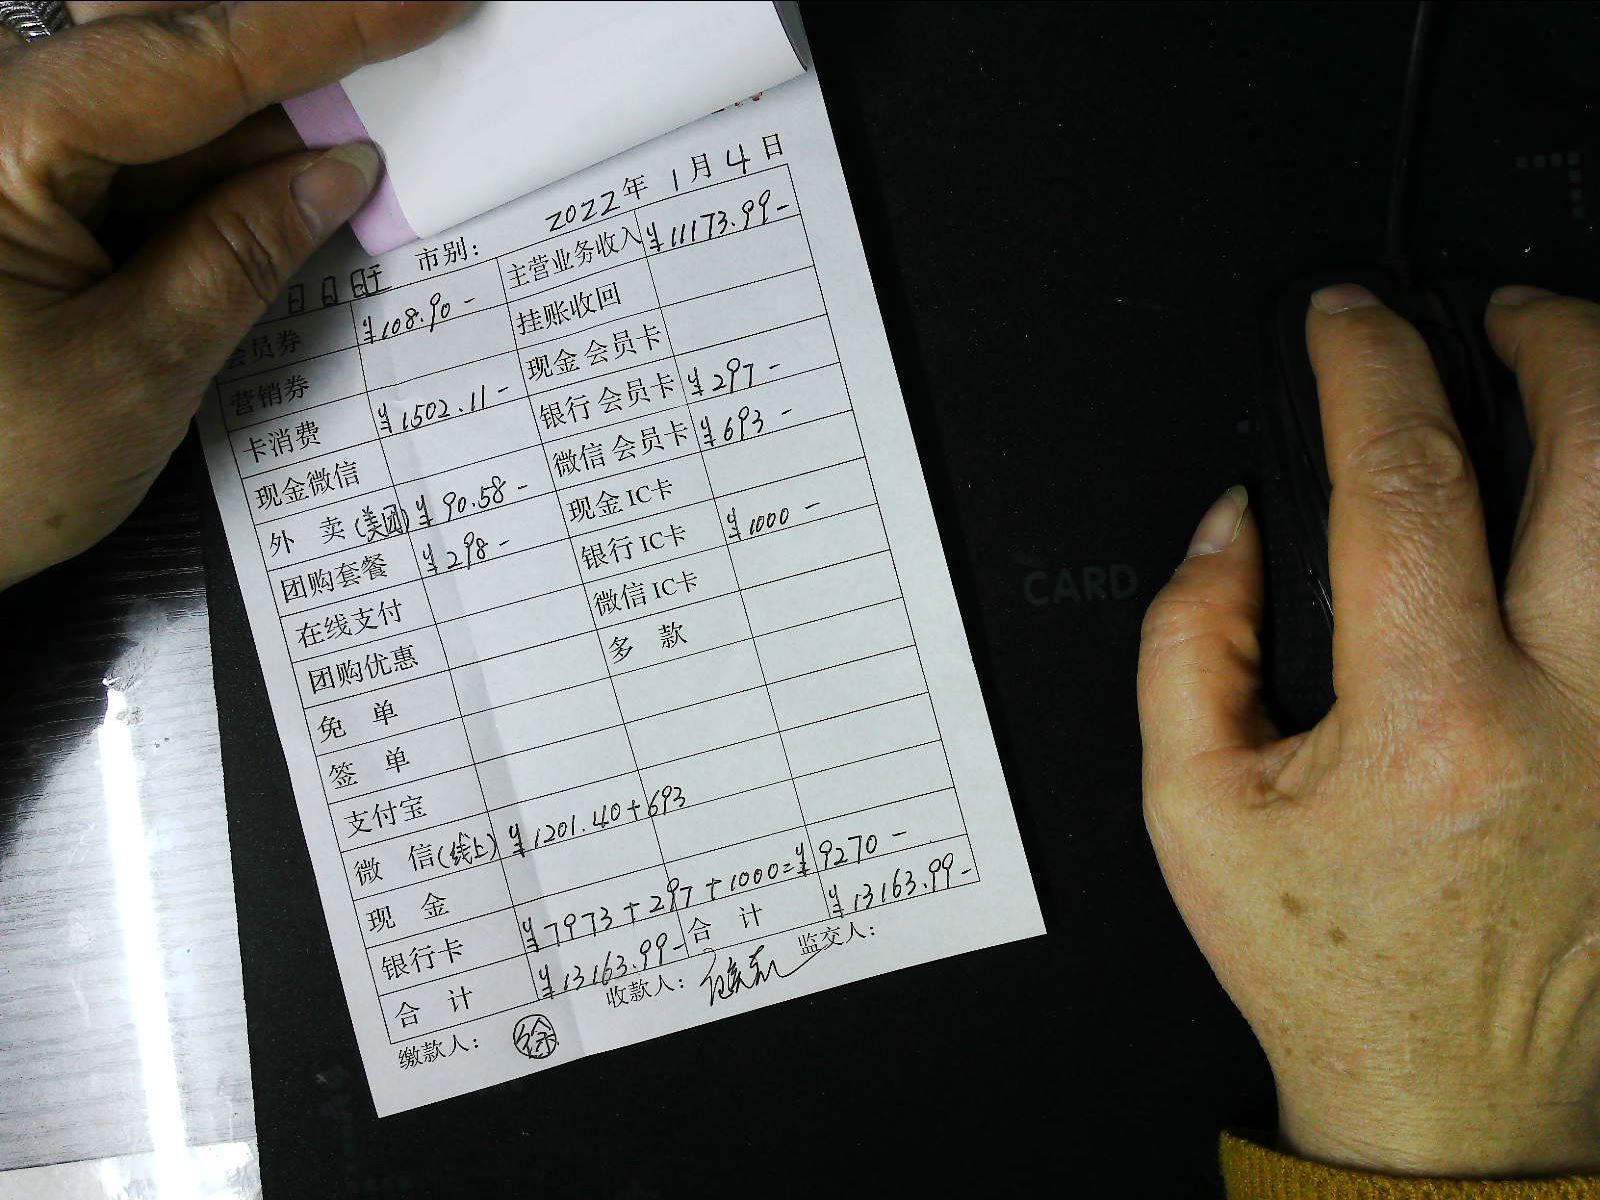 2022年 1月 4日
市别：
日日旺
会员券 ¥108.90- 主营业务收入 ¥11173.99-
营销券 挂账收回
卡消费 ¥1502.11- 现金 会员卡
现金微信 银行 会员卡 ¥297-
外 卖(美团) ¥90.58- 微信 会员卡 ¥693-
团购套餐 ¥298- 现金 IC卡
在线支付 银行 IC卡 ¥1000-
团购优惠 微信 IC卡
免 单 多 款
签 单
支付宝
微 信(线上) ¥1201.40+693
现 金
银行卡 ¥7973+297+1000=¥9270-
合 计 ¥13163.99- 合 计 ¥13163.99-
缴款人： 徐 收款人： 监交人：
CARD